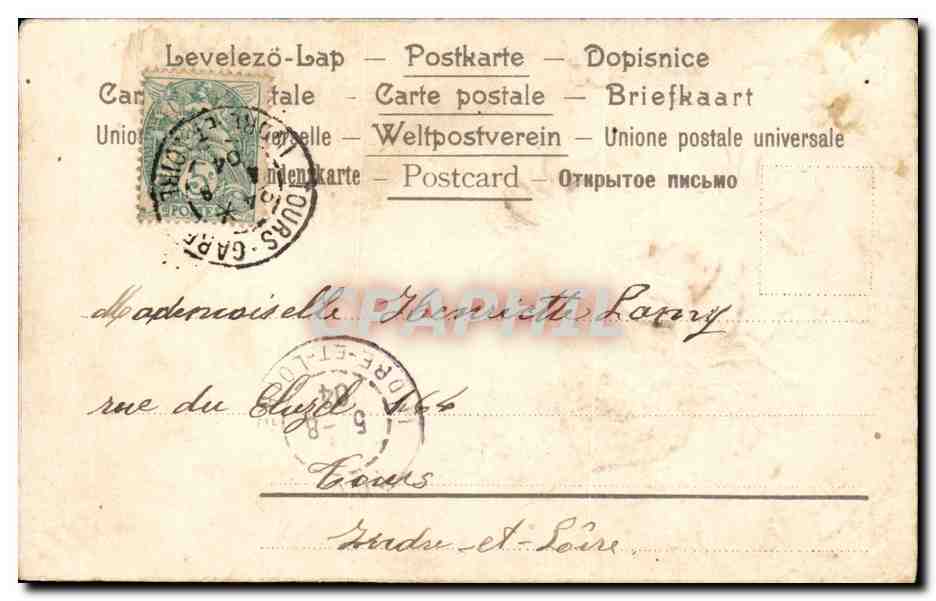 Levelezö-Lap — Postkarte — Dopisnice
tale - Carte postale — Briefkaart
Union selle — Weltpostverein — Unione postale universale
ndentkarte — Postcard — Открытое письмо
POSTE
TOURS-GARE
INDRE-ET-LOIRE
CPAPHIL
Mademoiselle Henriette Lamy
5 -8
04
rue du Cluzel
Tours
Indre-et-Loire